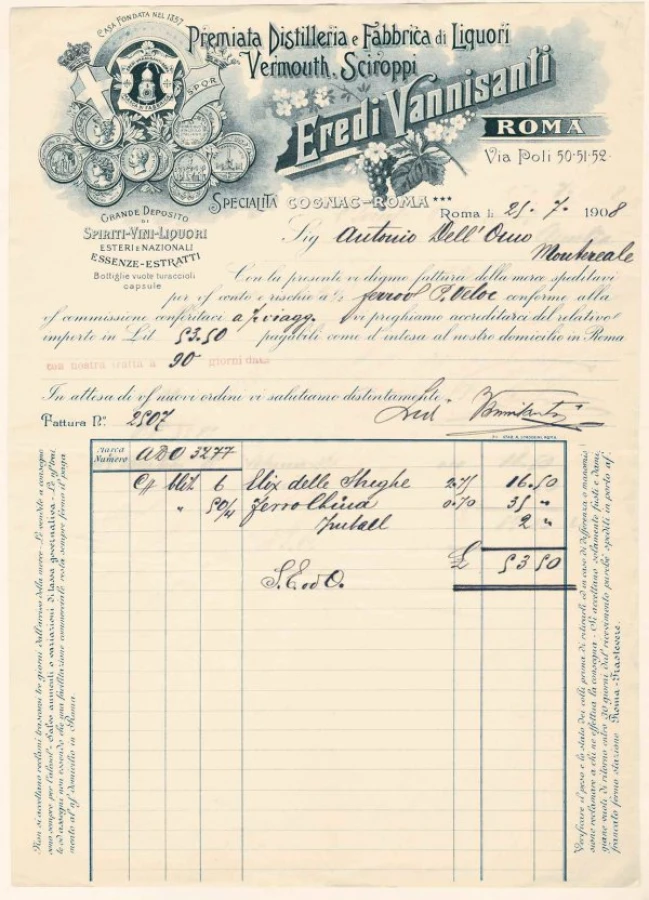 CASA FONDATA NEL 1857
Premiata Distilleria e Fabbrica di Liquori
Vermouth, Sciroppi
S.P.Q.R.
Eredi Vannisanti
ROMA
Via Poli 50-51-52
GRANDE DEPOSITO
DI
SPIRITI-VINI-LIQUORI
ESTERI E NAZIONALI
ESSENZE-ESTRATTI
Bottiglie vuote turaccioli
capsule
SPECIALITÀ COGNAC-ROMA ***
Roma lì 25. 7. 1908
Sig Antonio Dell'Orso
Montereale
Con la presente vi diamo fattura della merce speditavi
per v/ conto e rischio a ½ ferrov P. Veloc conforme alla
v/ commissione conferitaci a /viagg. vi preghiamo accreditarci del relativo
importo in Lit 53.50 pagabili come d'intesa al nostro domicilio in Roma
con nostra tratta a 90 giorni data
In attesa di v/ nuovi ordini vi salutiamo distintamente.
Fattura No. 2507
Marca
Numero ADO 3277
C/ blit 6 Elix delle Streghe 2.75 16.50
" 50/ Ferro China 0.70 35 "
Imball 2 "
£ 53 50
S. E. od O.
Non si accettano reclami trascorsi tre giorni dall'arrivo della merce - Le vendite a consegna
sono sempre per l'alcool - Salvo aumenti o variazioni di tassa governativa - Le v/ trat
te od assegni non essendo che una facilitazione commerciale resta sempre fermo il paga
mento al n/ domicilio in Roma.
Verificare il peso e lo stato dei colli prima di ritirarli ed in caso di differenza o manomis
sione reclamare a chi ne effettua la consegna - Si accettano solamente fusti e dami
giane vuoti di ritorno entro 30 giorni dal ricevimento purchè spediti in porto af
francato fermo stazione Roma-Trastevere.